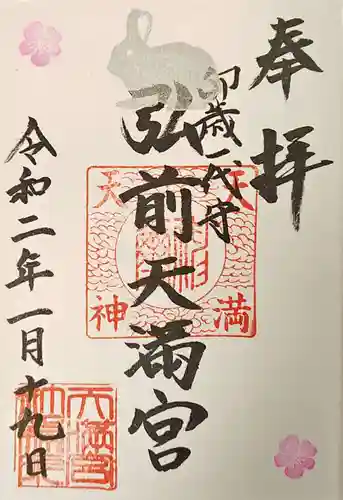 奉拝
卯歳一代守
弘前天満宮
令和二年一月十九日
天満
天神